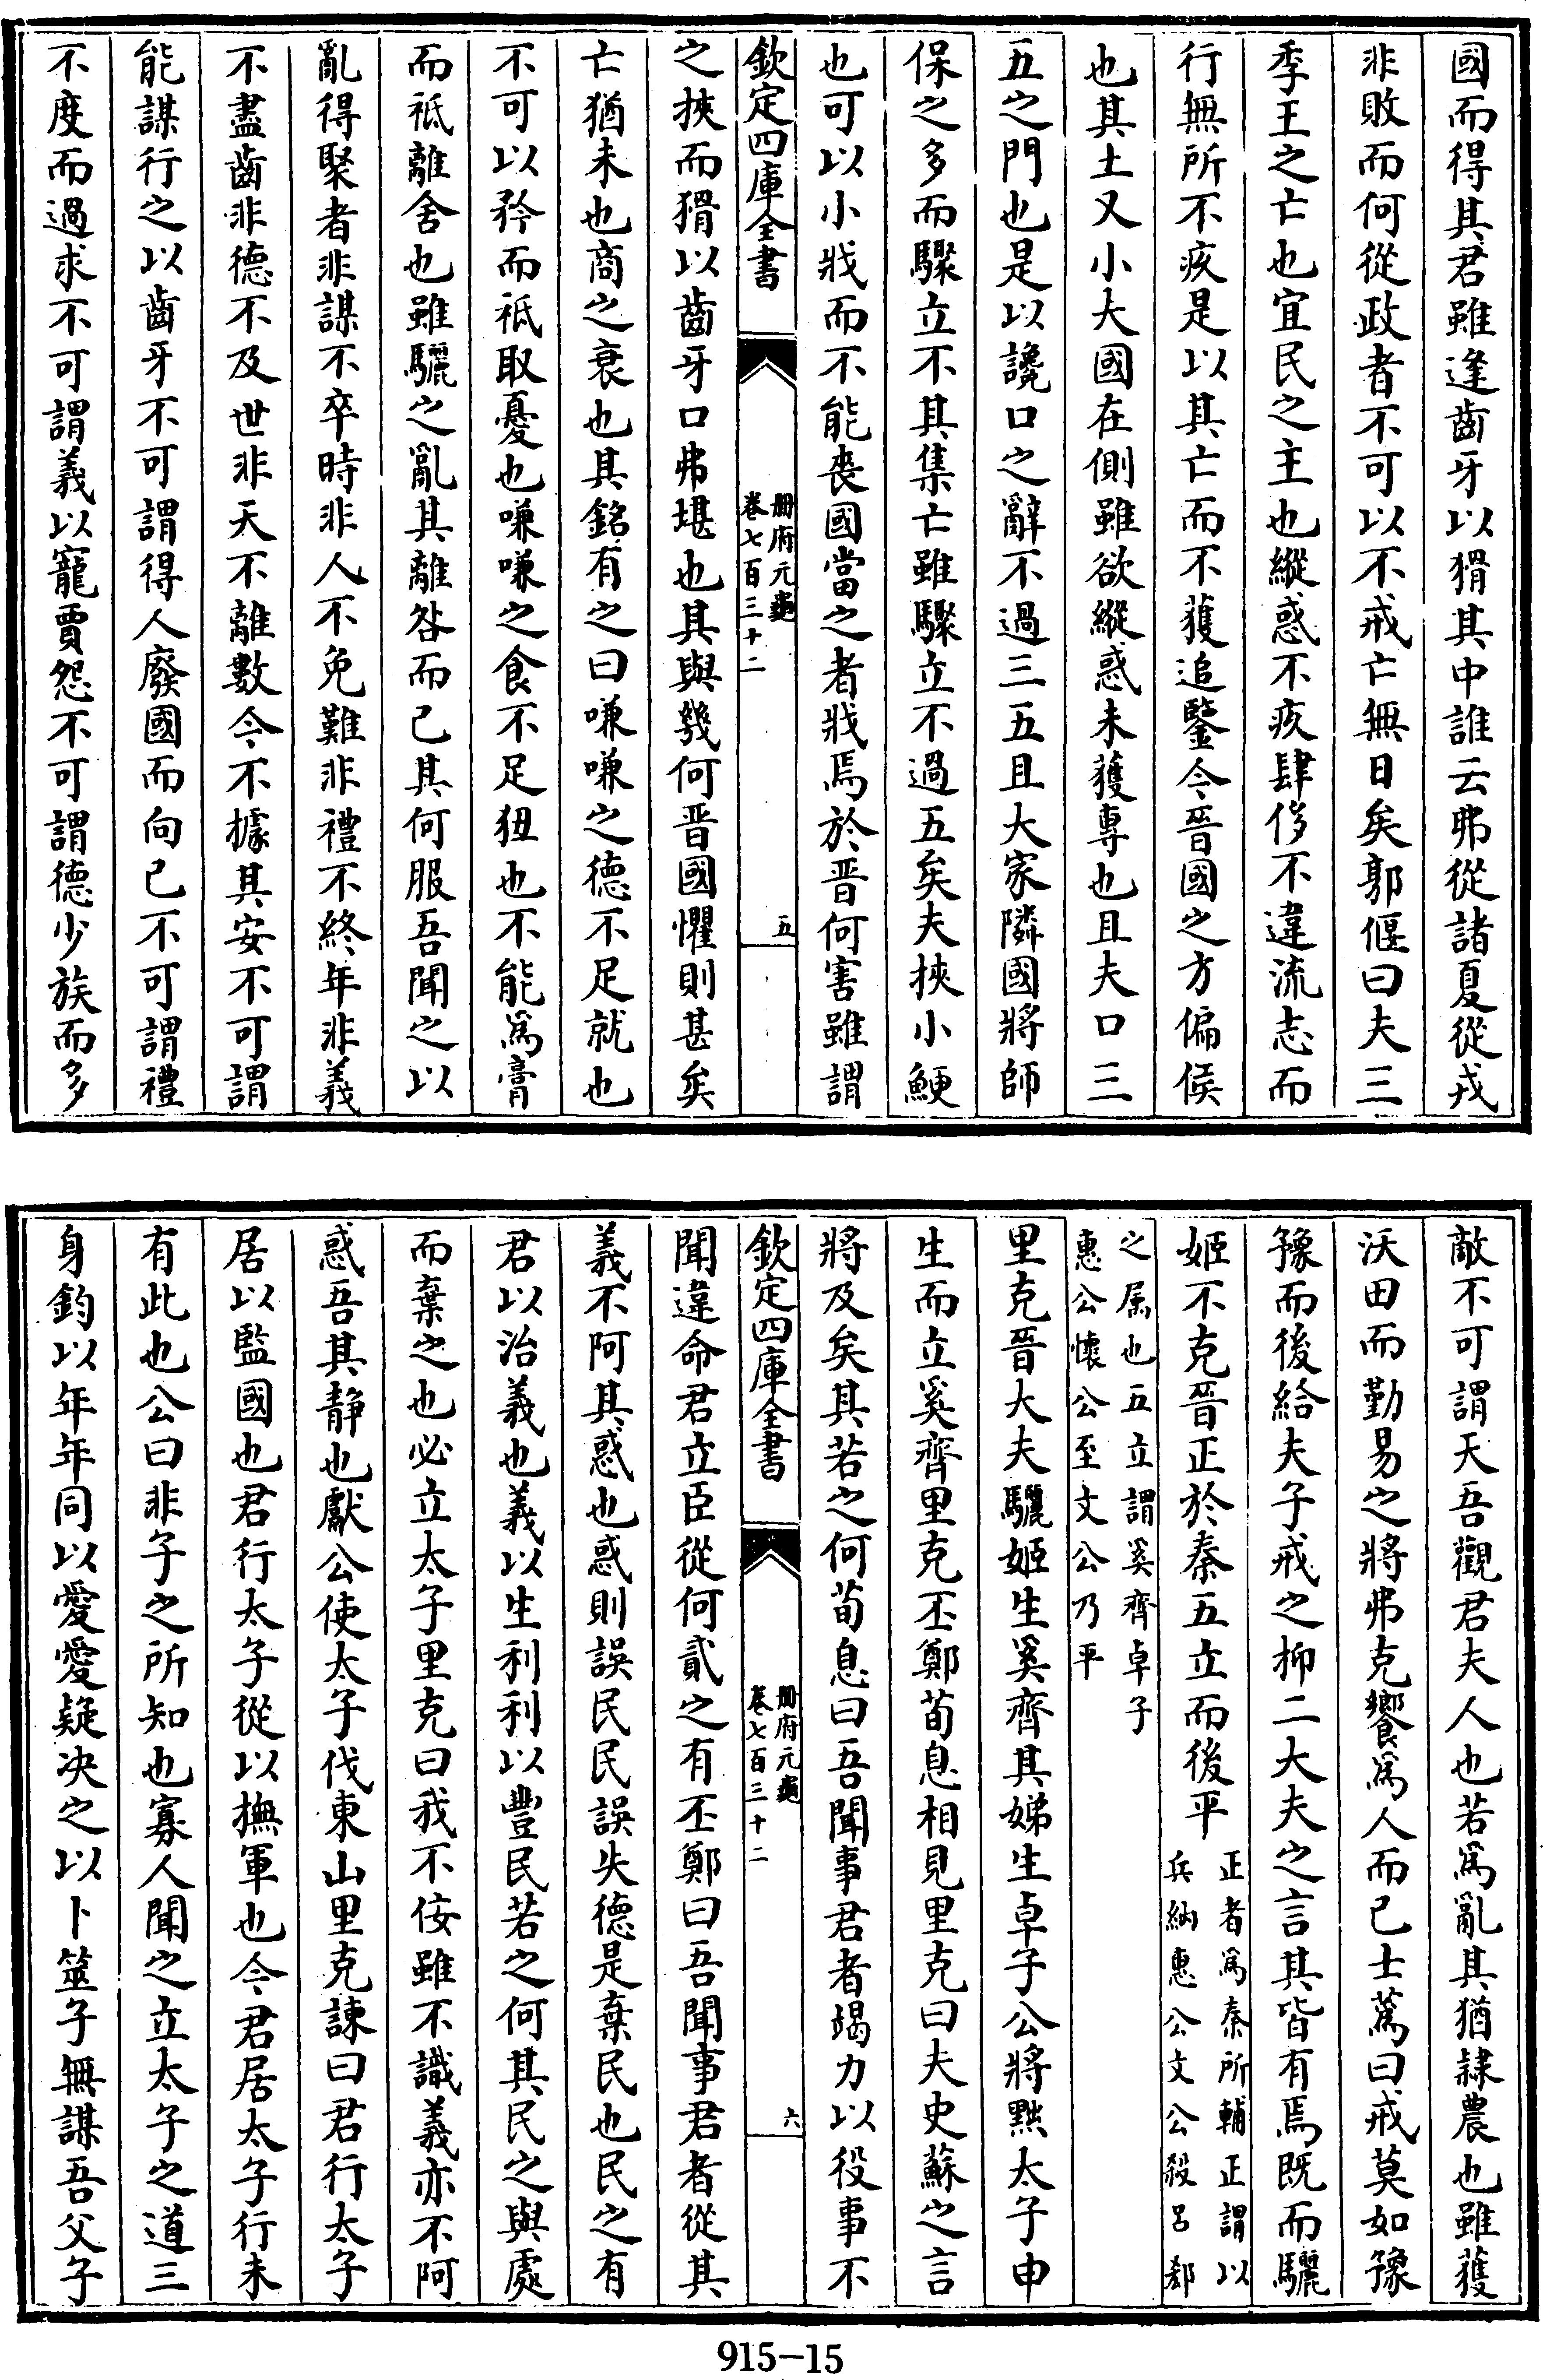 國而得其君雖逢齒牙以猾其中誰云弗從諸夏從戎
非敗而何從政者不可以不戒亡無日矣郭偃曰夫三
季王之亡也宜民之主也縱惑不疚肆侈不違流志而
行無所不疚是以其亡而不獲追鑒今晉國之方偏侯
也其土又小大國在側雖欲縱惑未獲專也且夫口三
五之門也是以讒口之辭不過三五且大家隣國將師
保之多而驟立不其集亡雖驟立不過五矣夫挾小鯁
也可以小戕而不能喪國當之者戕焉於晉何害雖謂
欽定四庫全書
冊府元龜
卷七百三十二
五
之挾而猾以齒牙口弗堪也其與幾何晉國懼則甚矣
亡猶未也商之衰也其銘有之曰嗛嗛之德不足就也
不可以矜而祗取憂也嗛嗛之食不足狃也不能為膏
而祗離咎也雖驪之亂其離咎而已其何服吾聞之以
亂得聚者非謀不卒時非人不免難非禮不終年非義
不盡齒非德不及世非天不離數今不據其安不可謂
能謀行之以齒牙不可謂得人廢國而向己不可謂禮
不度而過求不可謂義以寵賈怨不可謂德少族而多
敵不可謂天吾觀君夫人也若為亂其猶隸農也雖獲
沃田而勤易之將弗克饗為人而已士蔿曰戒莫如豫
豫而後給夫子戒之抑二大夫之言其皆有焉既而驪
姬不克晉正於秦五立而後平
正者為秦所輔正謂以
兵納惠公文公殺呂郄
之属也五立謂奚齊卓子
惠公懷公至文公乃平
里克晉大夫驪姬生奚齊其娣生卓子公將黜太子申
生而立奚齊里克丕鄭荀息相見里克曰夫史蘇之言
將及矣其若之何荀息曰吾聞事君者竭力以役事不
欽定四庫全書
冊府元龜
卷七百三十二
六
聞違命君立臣從何貳之有丕鄭曰吾聞事君者從其
義不阿其惑也惑則誤民民誤失德是棄民也民之有
君以治義也義以生利利以豐民若之何其民之與處
而棄之也必立太子里克曰我不佞雖不識義亦不阿
惑吾其静也獻公使太子伐東山里克諫曰君行太子
居以監國也君行太子從以撫軍也今君居太子行未
有此也公曰非子之所知也寡人聞之立太子之道三
身鈞以年年同以愛愛疑决之以卜筮子無謀吾父子
915-15